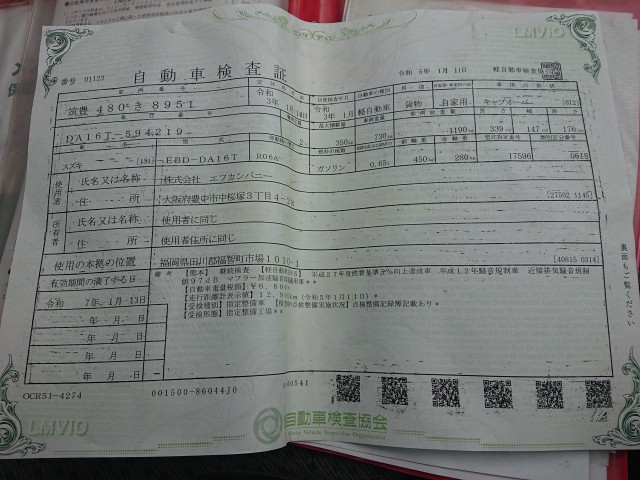 LMVIO
番号 01123
自動車検査証
令和 5年 1月 11日 軽自動車検査協
筑豊 480 き 8951
令和 3年 1月14日
令和 3年 1月
軽自動車
貨物
自家用
キャブオーバ
[612]
DA16T-594219
2
350kg
730kg
1190kg
339cm
147cm
176cm
スズキ
EBD-DA16T
R06A
ガソリン
0.65
450kg
280kg
17596
0618
使用者
氏名又は名称
株式会社 エフカンパニー
住所
大阪府豊中市中桜塚3丁目4-28
[27502 1145]
所有者
氏名又は名称
使用者に同じ
住所
使用者住所に同じ
使用の本拠の位置
福岡県田川郡福智町市場1010-1
[40815 0314]
有効期間の満了する日
令和 7年 1月 13日
年 月 日
年 月 日
年 月 日
年 月 日
備考
継続検査
平成27年度燃費基準
%向上達成車
近接排気騒音規制
値97dB マフラー加速騒音規制適用車
【自動車重量税額】¥6,600
【走行距離計表示値】
(令和5年1月11日)
【受検種別】指定整備車
点検整備記録簿記載あり
【受検形態】指定整備工場
裏面もご覧ください
OCR51-4274
001500-86044J0
自動車検査協会
LMVIO